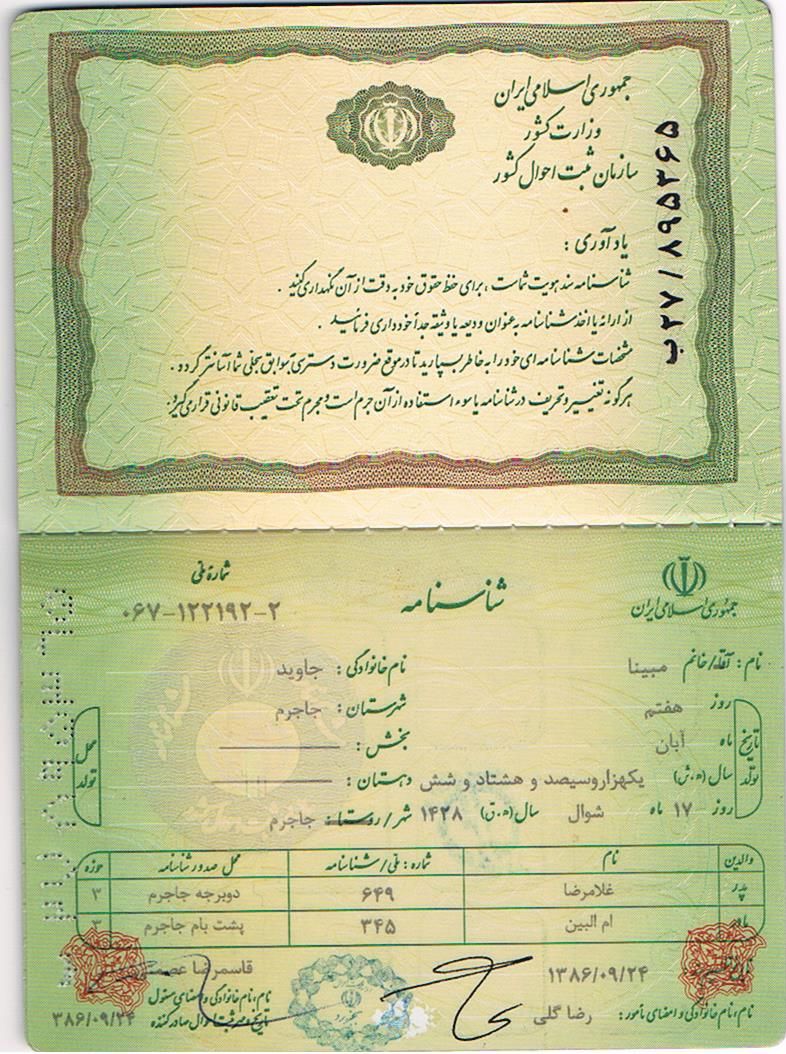 جمهوری اسلامی ایران
وزارت کشور
سازمان ثبت احوال کشور
ب۲۷/۸۹۵۳۶۵
یادآوری :
شناسنامه سند هویت شماست ، برای حفظ حقوق خود به دقت از آن نگهداری کنید .
از ارائه یا اخذ شناسنامه به عنوان ودیعه یا وثیقه جداً خودداری فرمائید .
مشخصات شناسنامه ای خود را به خاطر بسپارید تا در موقع ضرورت دسترسی به سوابق سجلی شما آسانتر گردد .
هرگونه تغییر و تحریف در شناسنامه یا سوء استفاده از آن جرم است و مجرم تحت تعقیب قانونی قرار می گیرد.
جمهوری اسلامی ایران
شناسنامه
شماره ملی
۰۶۷-۱۲۲۱۹۲-۲
نام : آقا/خانم مبینا نام خانوادگی : جاوید
تاریخ تولد روز هفتم شهرستان : جاجرم محل تولد
ماه آبان بخش :
سال (ه.ش) یکهزاروسیصد و هشتاد و شش دهستان :
روز ۱۷ ماه شوال سال (ه.ق) ۱۴۲۸ شهر/روستا : جاجرم
والدین نام شماره : ملی/شناسنامه محل صدور شناسنامه حوزه
پدر غلامرضا ۶۴۹ دوبرجه جاجرم ۳
مادر ام البین ۳۴۵ پشت بام جاجرم ۳
۱۳۸۶/۰۹/۲۴
قاسمرضا
نام، نام خانوادگی و امضای مأمور : رضا گلی
نام، نام خانوادگی و امضای مسئول
تاریخ و مهر ثبت احوال صادرکننده
۳۸۶/۰۹/۲۴